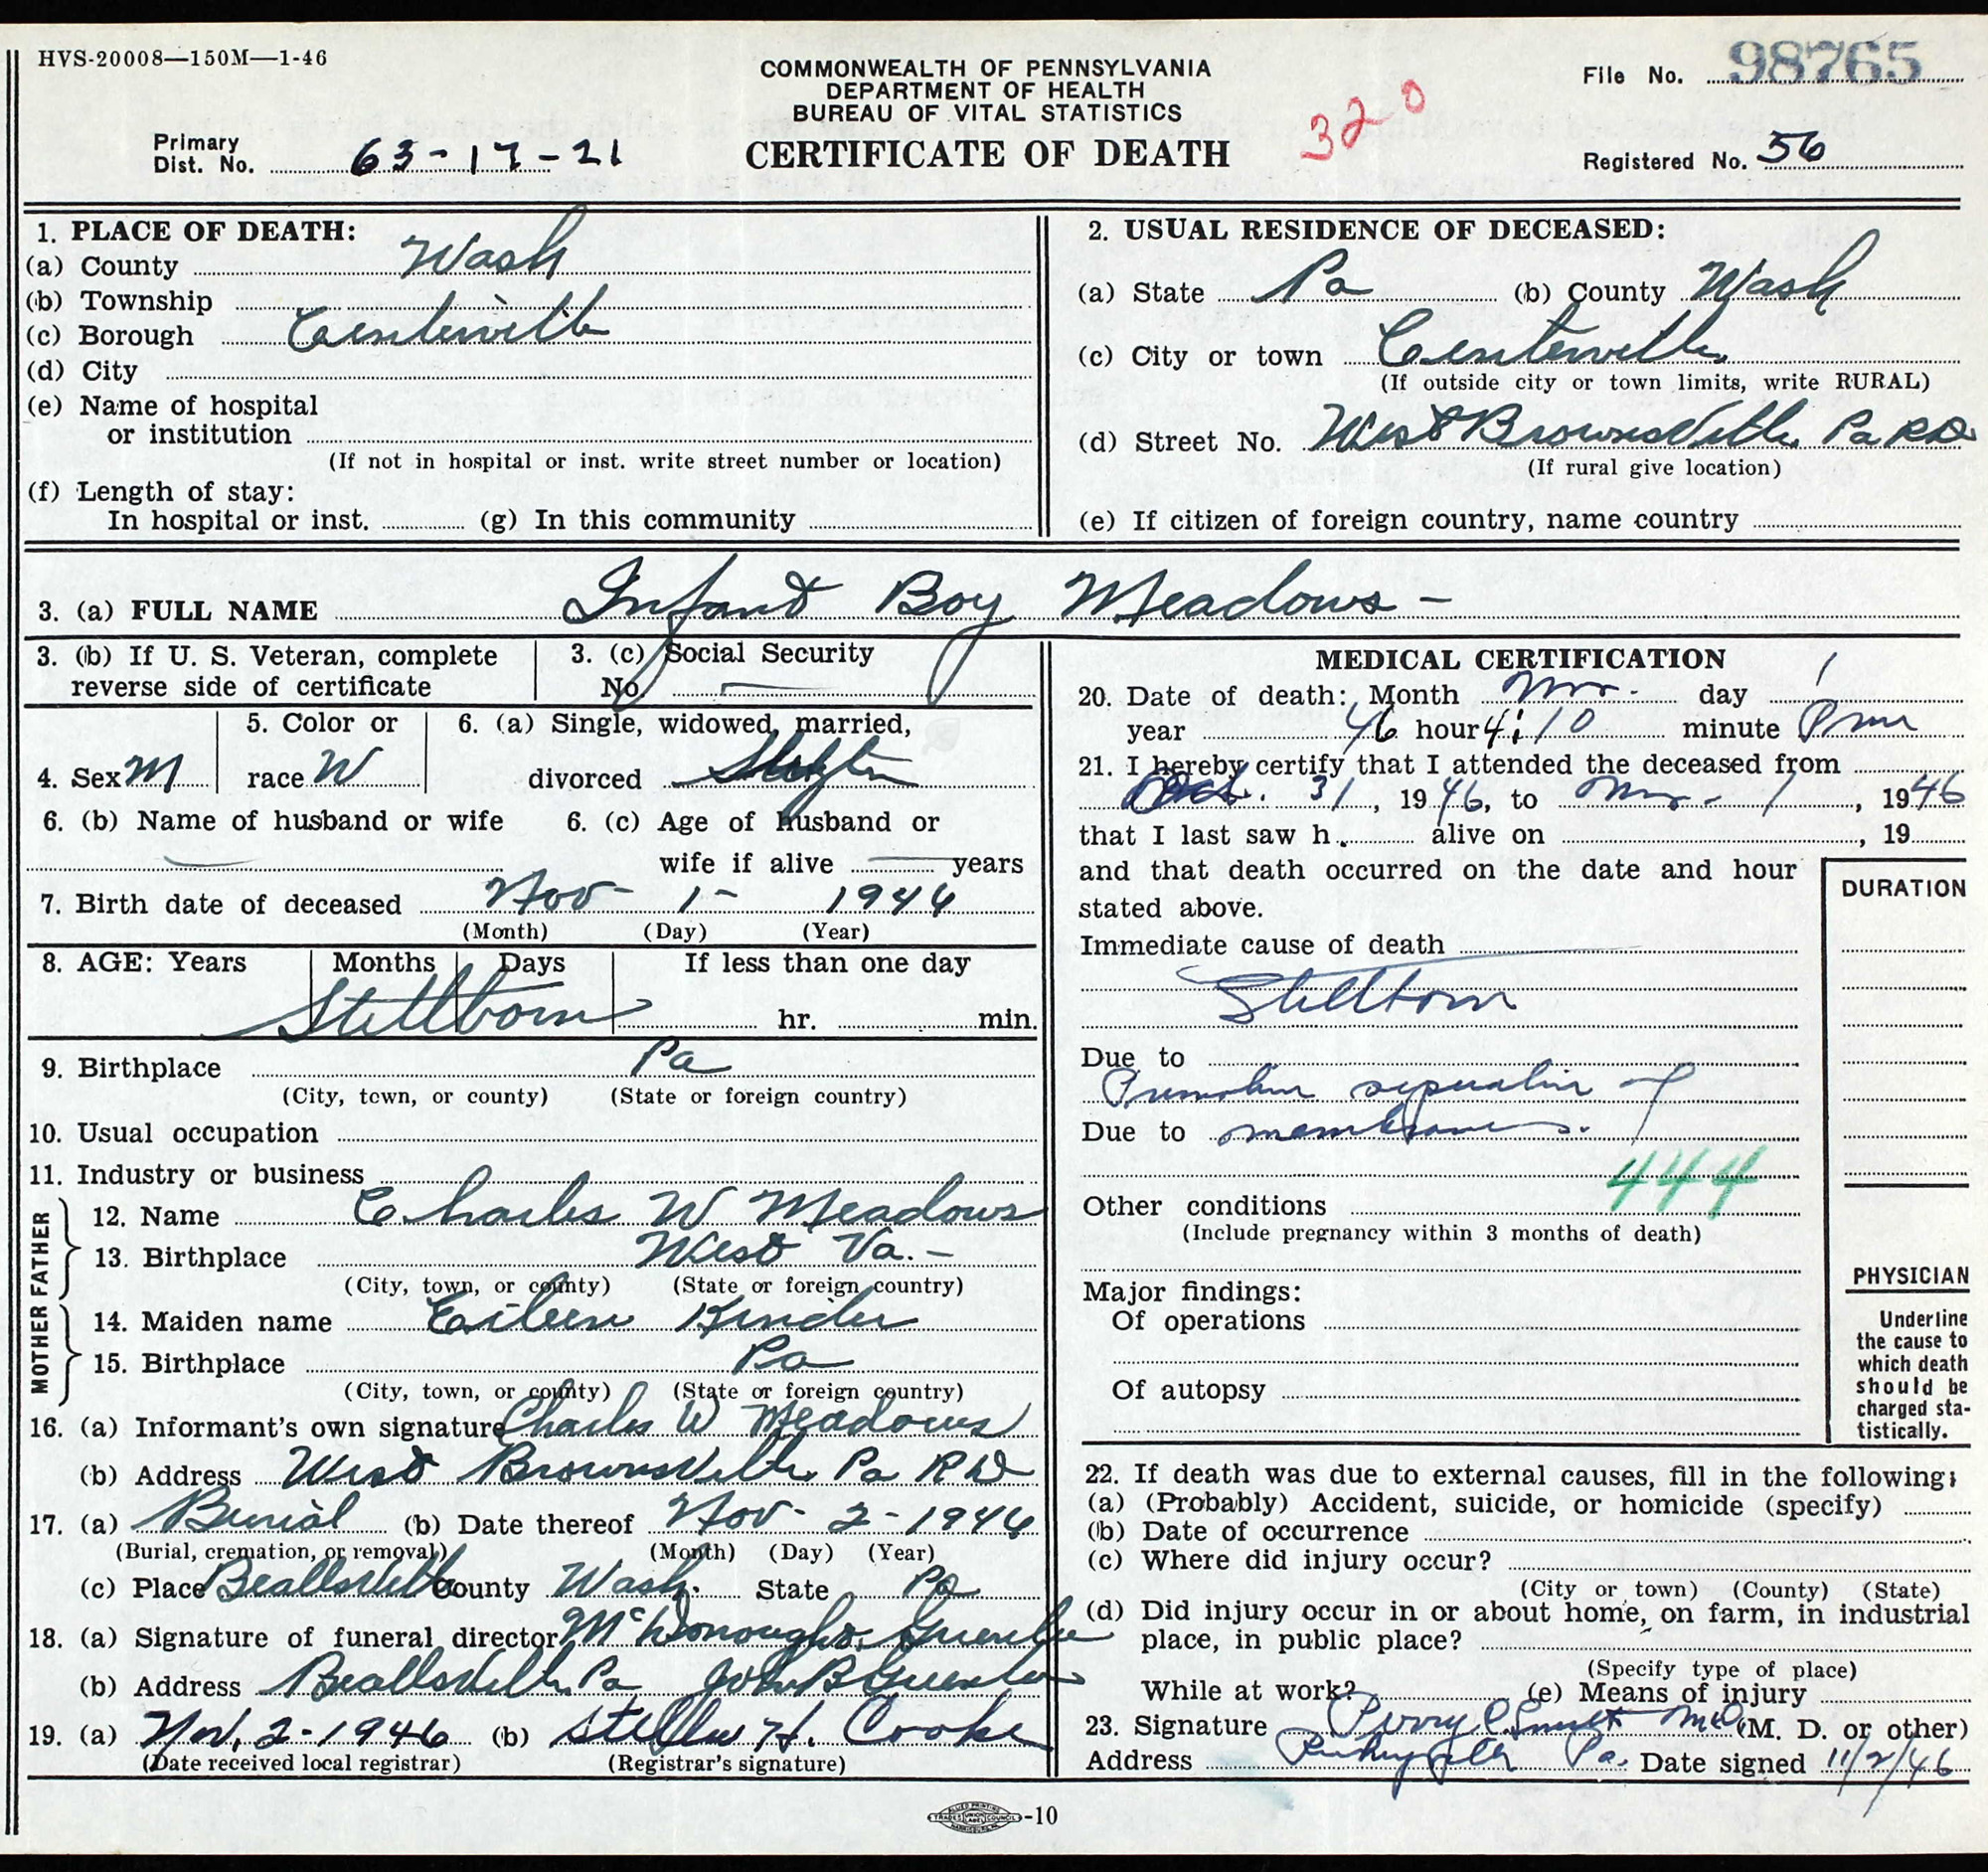 HVS-20008—150M—1-46
COMMONWEALTH OF PENNSYLVANIA
DEPARTMENT OF HEALTH
BUREAU OF VITAL STATISTICS
CERTIFICATE OF DEATH
320
File No. 98765
Registered No. 56
Primary
Dist. No. 63-17-21
1. PLACE OF DEATH:
(a) County Wash
(b) Township
(c) Borough Centerville
(d) City
(e) Name of hospital
or institution
(If not in hospital or inst. write street number or location)
(f) Length of stay:
In hospital or inst. (g) In this community
2. USUAL RESIDENCE OF DECEASED:
(a) State Pa (b) County Wash
(c) City or town Centerville
(If outside city or town limits, write RURAL)
(d) Street No. West Brownsville Pa RD
(If rural give location)
(e) If citizen of foreign country, name country
3. (a) FULL NAME Infant Boy Meadows -
3. (b) If U. S. Veteran, complete
reverse side of certificate
3. (c) Social Security
No. —
4. Sex M
5. Color or
race W
6. (a) Single, widowed, married,
divorced
6. (b) Name of husband or wife
—
6. (c) Age of husband or
wife if alive — years
7. Birth date of deceased Nov - 1 - 1946
(Month) (Day) (Year)
8. AGE: Years Months Days If less than one day
Stillborn hr. min.
9. Birthplace Pa
(City, town, or county) (State or foreign country)
10. Usual occupation
11. Industry or business
FATHER
12. Name Charles W Meadows
13. Birthplace West Va. -
(City, town, or county) (State or foreign country)
MOTHER
14. Maiden name Eileen Kinder
15. Birthplace Pa
(City, town, or county) (State or foreign country)
16. (a) Informant's own signature Charles W Meadows
(b) Address West Brownsville Pa RD
17. (a) Burial (b) Date thereof Nov - 2 - 1946
(Burial, cremation, or removal) (Month) (Day) (Year)
(c) Place Beallsville County Wash. State Pa
18. (a) Signature of funeral director McDonough &
(b) Address Beallsville Pa John B
19. (a) Nov. 2 - 1946 (b) Stella H. Cooke
(Date received local registrar) (Registrar's signature)
MEDICAL CERTIFICATION
20. Date of death: Month Nov. day 1
year 46 hour 4:10 minute Pm
21. I hereby certify that I attended the deceased from
Oct. 31, 1946, to Nov. 1, 1946
that I last saw h alive on , 19
and that death occurred on the date and hour
stated above.
DURATION
Immediate cause of death
Stillborn
Due to
Premature separation of
Due to membranes.
444
Other conditions
(Include pregnancy within 3 months of death)
Major findings:
Of operations
Of autopsy
PHYSICIAN
Underline
the cause to
which death
should be
charged sta-
tistically.
22. If death was due to external causes, fill in the following:
(a) (Probably) Accident, suicide, or homicide (specify)
(b) Date of occurrence
(c) Where did injury occur?
(City or town) (County) (State)
(d) Did injury occur in or about home, on farm, in industrial
place, in public place?
(Specify type of place)
While at work? (e) Means of injury
23. Signature Perry C. MD (M. D. or other)
Address Pa. Date signed 11/2/46
-10